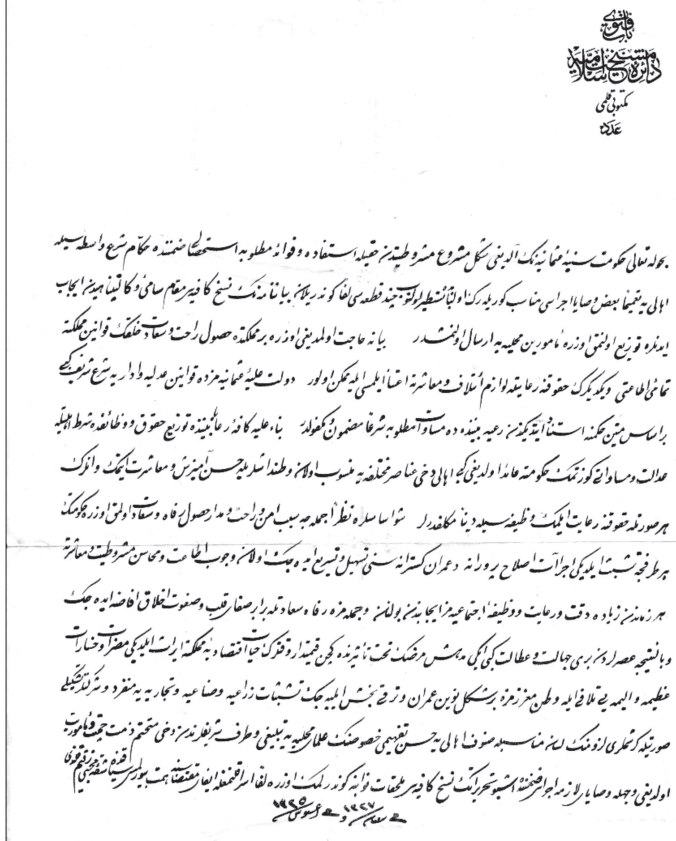 باب فتوى
دائرۀ مشيخت اسلاميه
مكتوبی قلمی
عدد
بحوله تعالی حكومت سنيۀ عثمانيه نك آلديغی شكل مشروع مشروطيتدن حقيله استفاده و فوائد مطلوبه استحصالی ضمننده حكام شرع واسطه سيله
اهالی يه تعميماً بعض وصايا اجراسی مناسب كوريله رك اولبابده بياننامه نك نسخ كافيه سی مقام سامئ
ايدنلره توزيع اولنمق اوزره مأمورين محليه يه ارسال اولنمشدر بيانه حاجت اولمديغی اوزره بر مملكتده حصول راحت و سعادت خلقك قوانين مملكته
تمامئ اطاعتی و يكديكرك حقوقنه رعايتله لوازم ائتلاف و معاشرته اعتنا ايلمسی ايله ممكن اولور دولت عليۀ عثمانيه مزده قوانين عدليه و اداريه شرع شريف كبی
بر اساس متين حكمته استناد ايتديكندن تبعه بيننده مساوات مطلوبه شرعاً مضمون و مكفولدر بناءً عليه كافۀ رعايا بيننده توزيع حقوق و وظائفده شرط اهليته
عدالت و مساواتی كوزتمك حكومته عائد اولديغی كبی اهالی دخی عناصر مختلفه يه منسوب اولان وطنداشلريله حسن آميزش و معاشرت ايتمك و آنلرك
هر صورتله حقوقنه رعايت ايلمك وظيفه سيله ديناً مكلفدرلر شو اساسلره نظراً جمله جه سبب امن و راحت و مدار حصول رفاه و سعادت اولمق اوزره حكومتك
هر طرفجه تشبث ايلديكی اجراآت اصلاح پرورانه و عمران كسترانه سنی تسهيل و تسريع ايده جك اولان وجوب اطاعت و محاسن مشروطيت و معاشرته
هر زماندن زياده دقت و رعايت و وظيفۀ اجتماعيه مز ايجابندن بولنان و جمله مزه رفاه و سعادتله برابر صفای قلب و صفوت اخلاق افاضه ايده جك
و بالنتيجه عصرلردن بری جهالت و عطالت كبی ايكی مدهش مرضك تحت تأثيرنده كچن قيمتدار وقتلرك حيات اقتصاديۀ مملكته ايراث ايلديكی مضرات و خسارات
عظيمه و اليمه يی تلافی ايله وطن معززمزه بر شكل نوين عمران و ترقی بخش ايليه جك تشبثات زراعيه و صناعيه و تجاريه يه منفرد و شركتلر تشكيلی
صورتيله كيرشملری لزومنك لسان مناسبله صنوف اهالی يه حسن تفهيمی خصوصنك علمای محليه يه تبليغی و طرف شريفلرندن دخی متحتم ذمت حميت و مأموريت
اولديغی وجهله وصايای لازمه اجراسی ضمننده اشبو تحريراتك نسخ كافيه سی ملحقات نوابنه كوندرلمك اوزره لفاً ارسال قلنمغله ايفای مقتضاسنه همت بيورلمسی
فی شعبان ١٣٢٧ و فی اغستوس ١٣٢٥